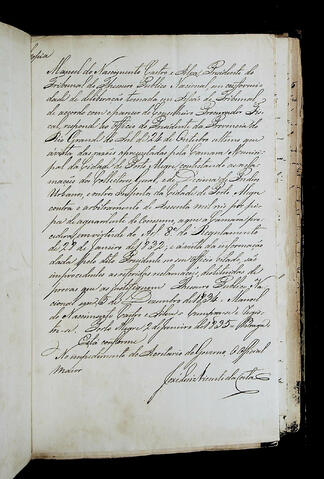 Copia
Manoel do Nascimento Castro e Silva Presidente do
Tribunal do Thesouro Publico Nacional, em conformi
dade da deliberação tomada em Sessão do Tribunal, e
de acordo com o parecer do Conselheiro Procurador Fis
cal, responde ao Officio do Presidente da Provincia do
Rio Grande do Sul de 24 de Outubro ultimo que
a vista das razões apresentadas pela Camara Munici
pal da Cidade de Porto Alegre contestando as recla
mações do Collector Geral da Decima dos Predios
Urbanos, e outros da Cidade de Porto Alegre
contra o arbitramento de secenta mil reis por pi
pa de aguardente de Consumo, a que a Camara pro
cedera em virtude do Art 8º do Regulamento
de 27 de Janeiro de 1832, e á vista da informação
dada pelo dito Presidente no seu officio citado, são
improcedentes as referidas reclamações, e destituidas de
provas que as justifiquem. Thesouro Publico Na
cional em 5 de Dezembro de 1834. Manoel
do Nascimento Castro e Silva. Cumpra-se e regis
te-se. Porto Alegre 2 de Janeiro de 1835. Braga.
Está conforme
No impedimento do Secretario do Governo O Official
Maior
José Luiz Vicente da Costa